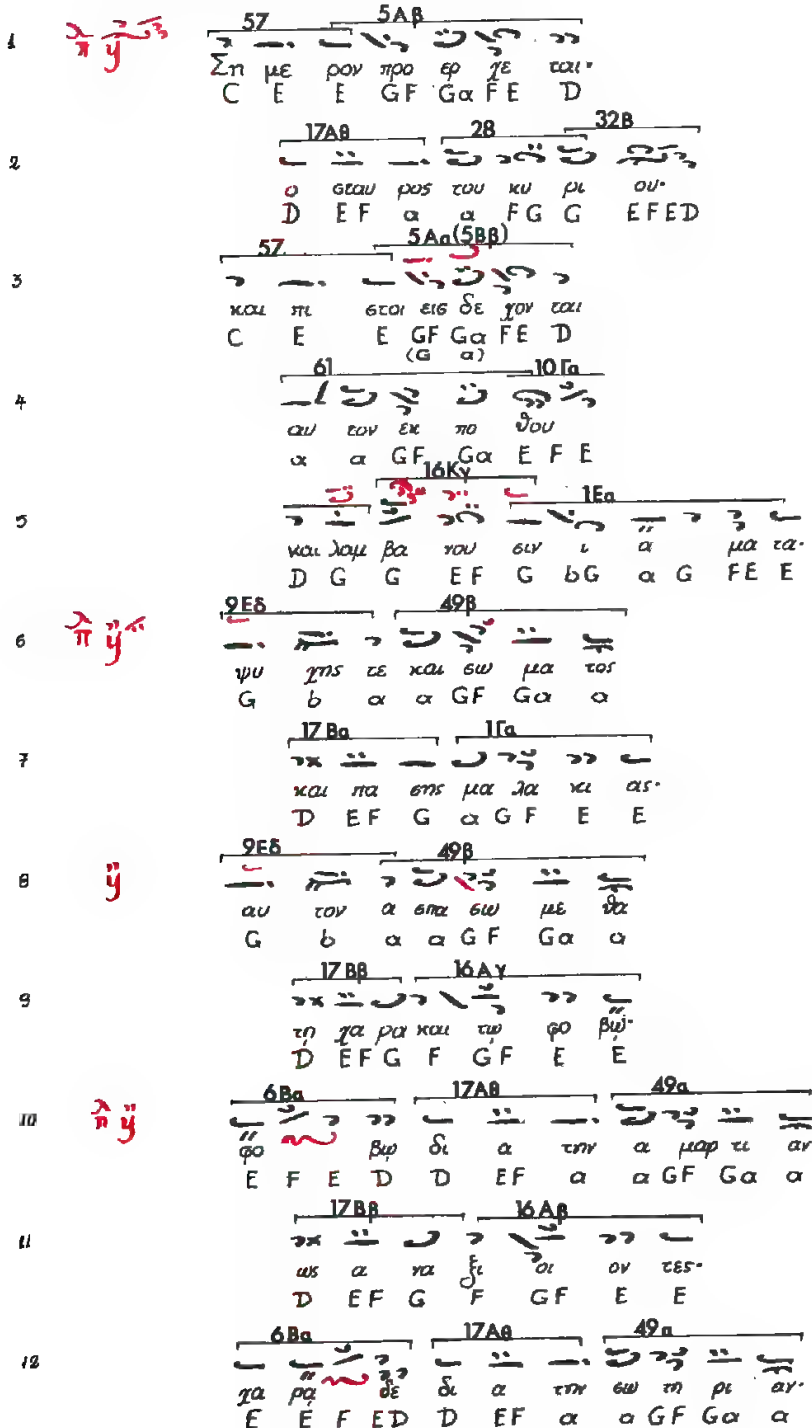 57 5Αβ
1 λ π ÿ
Ση με ρον προ ερ χε ται·
C E E GF Gα FE D
17Αθ 28 32Β
2
ο σταυ ρος του κυ ρι ου·
D EF α α FG G EFED
57 5Αα(5Ββ)
3
και πι στοι εις δε χον ται
C E E GF Gα FE D
(G α)
61 10Γα
4
αυ τον εκ πο θου
α α GF Gα E F E
16Κγ 1Εα
5
και λαμ βα νου σιν ι α μα τα·
D G G EF G bG α G FE E
9Εδ 49β
6 λ π ÿ
ψυ χης τε και σω μα τος
G b α α GF Gα α
17Βα 1Γα
7
και πα σης μα λα κι ας·
D EF G α GF E E
9Εδ 49β
8 ÿ
αυ τον α σπα σω με θα
G b α α GF Gα α
17Ββ 16Αγ
9
τῃ χα ρα και τω φο βω·
D EF G F GF E E
6Βα 17Αθ 49α
10 λ π ÿ
φο βω δι α την α μαρ τι αν
E F E D D EF α α GF Gα α
17Ββ 16Αβ
11
ως α να ξι οι ον τες·
D EF G F GF E E
6Βα 17Αθ 49α
12
χα ρα δε δι α την σω τη ρι αν·
E E F ED D EF α α GF Gα α